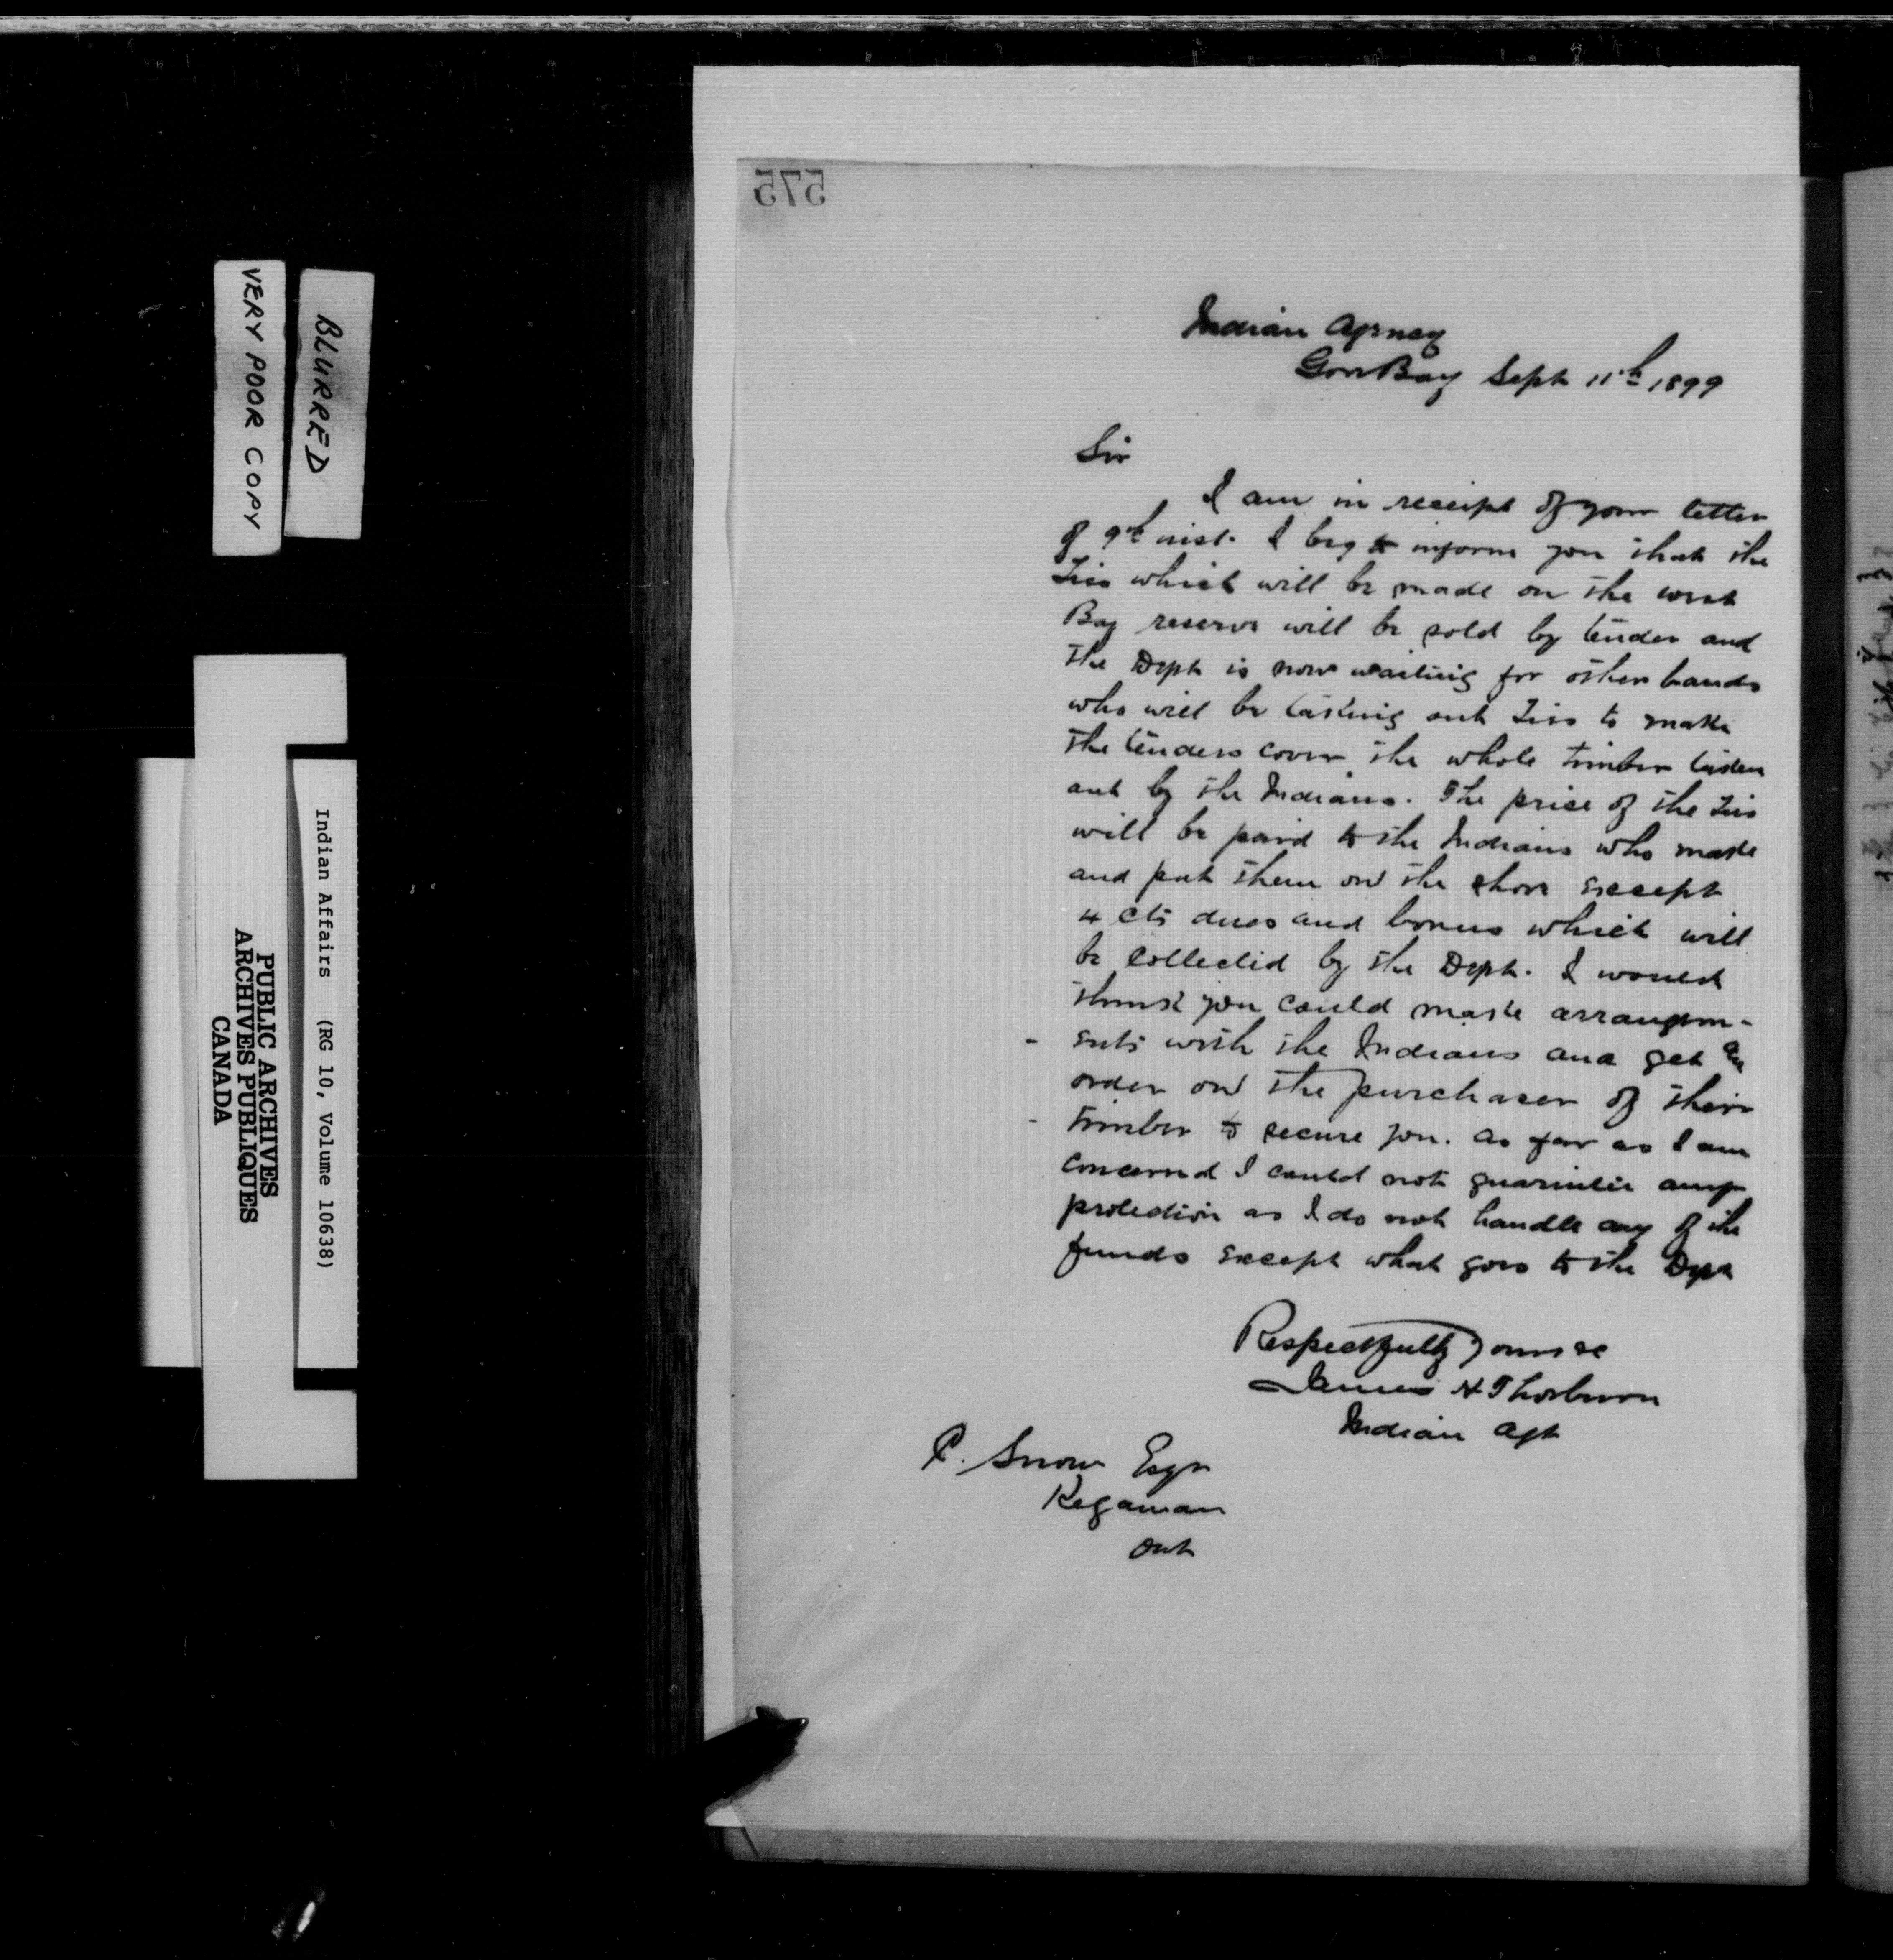 575
Indian Agency
Gore Bay Sept 11th 1899
Sir
I am in receipt of your letter
of 9th inst. I beg to inform you that the
Ties which will be made on the West
Bay reserve will be sold by tender and
the Dept is now waiting for other bands
who will be taking out Ties to make
the tenders cover the whole timber taken
out by the Indians. The price of the Ties
will be paid to the Indians who make
and put them on the shore except
4 cts dues and bonus which will
be collected by the Dept. I would
think you could make arrangem-
ents with the Indians and get an
order on the purchaser of their
timber to secure you. As far as I am
concerned I could not guarantee any
protection as I do not handle any of the
funds except what goes to the Dept
Respectfully Yours &c
James H Thorburn
Indian Agt
P. Snow Esqr
Kagaman
Ont
BLURRED
VERY POOR COPY
Indian Affairs (RG 10, Volume 10638)
PUBLIC ARCHIVES
ARCHIVES PUBLIQUES
CANADA